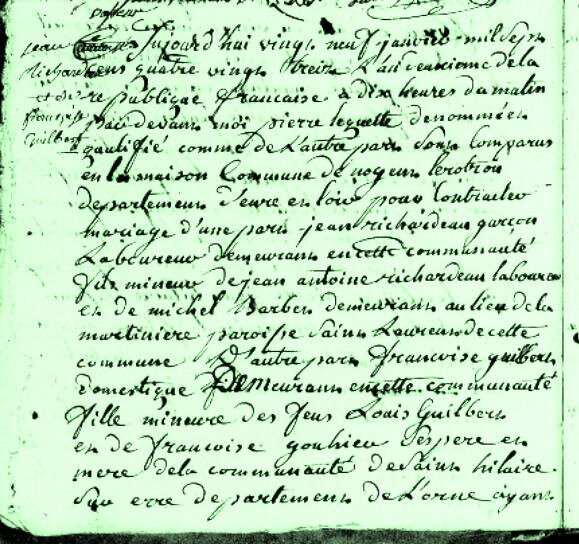 jean
Richardeau
et de
françoise
Guilbert
aujourd'hui vingt neuf janvier mil sept
cens quatre vingt treize L'an deuxieme de la
republique francaise a dix heures du matin
par devant moi pierre lequette denommé et
qualifié comme de L'autre part Sont Comparus
en la maison Commune de nogent lerotrou
departement d'eure en loir pour Contracter
mariage d'une part jean richardeau garçon
Laboureur demeurant en cette communauté
fils mineur de jean antoine richardeau laboureur
et de michel Barbet demeurant au lieu de la
martiniere paroisse Saint Laurent de cette
commune D'autre part francoise guilbert
domestique Demeurant en cette communauté
fille mineure des feus Louis Guilbert
et de francoise gouhier Ses pere et
mere de la communauté de Saint hilaire
Sur erre departement de L'orne ayant